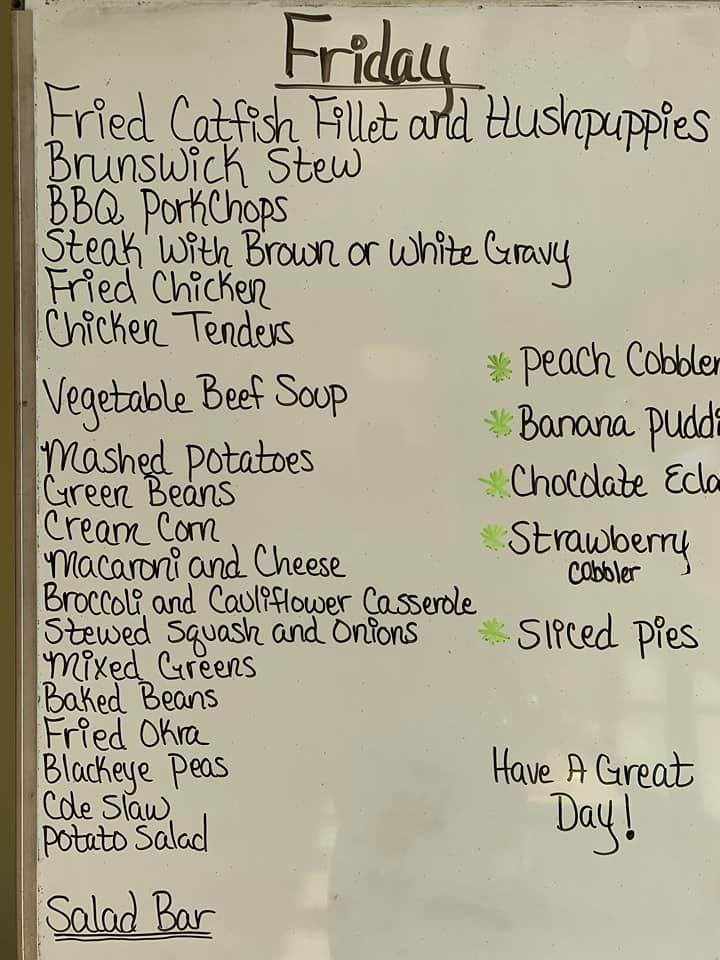 Friday
Fried Catfish Fillet and Hushpuppies
Brunswick Stew
BBQ PorkChops
Steak With Brown or White Gravy
Fried Chicken
Chicken Tenders
Vegetable Beef Soup
Mashed Potatoes
Green Beans
Cream Corn
Macaroni and Cheese
Broccoli and Cauliflower Casserole
Stewed Squash and Onions
Mixed Greens
Baked Beans
Fried Okra
Blackeye Peas
Cole Slaw
Potato Salad
Salad Bar
Peach Cobbler
Banana Puddi
Chocolate Ecla
Strawberry
Cobbler
Sliced Pies
Have A Great
Day!